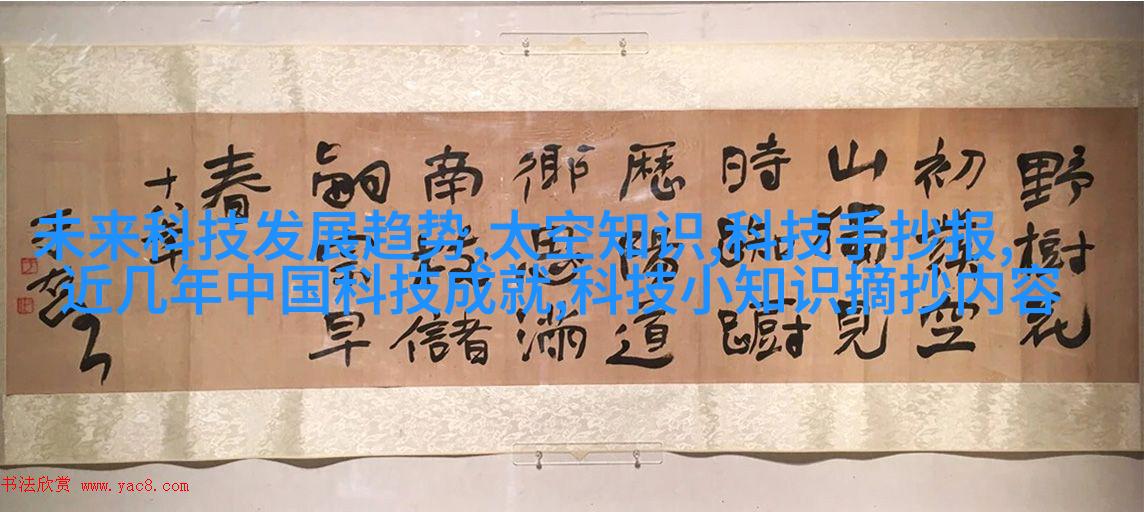 野樹花
初發空
山獨見
時踟躕
歷陽道
鄉思滿
南枝儲
嗣宗早
春
十八年
未来科技发展趋势,太空知识,科技手抄报,
近几年中国科技成就,科技小知识摘抄内容
书法欣赏 www.yac8.com